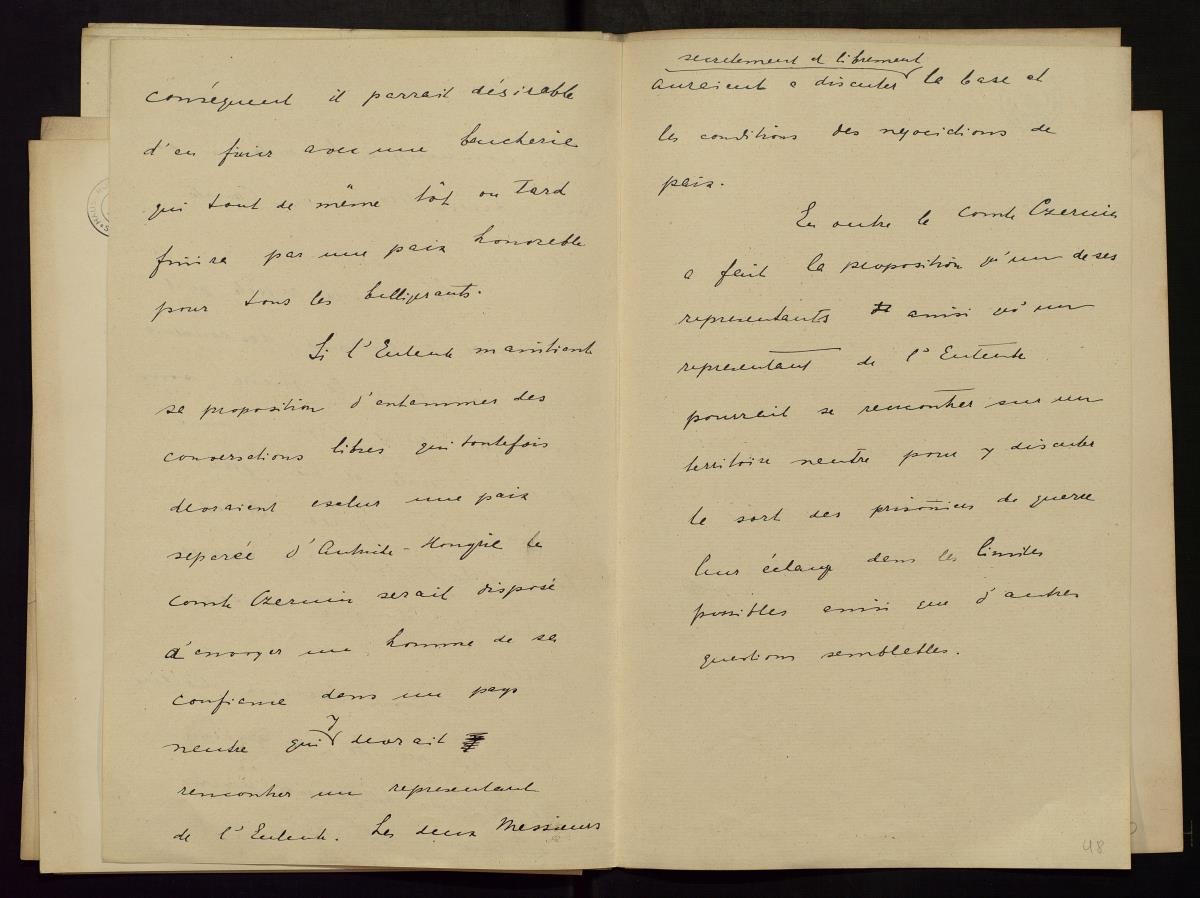 conséquent il parrait désirable
d'en finir avec une boucherie
qui tout de même tôt ou tard
finira par une paix honorable
pour tous les belligerants.
Si l'Entente maintient
sa proposition d'entammer des
conversations libres qui toutefois
devraient exclur une paix
separée d'Autriche-Hongrie le
comte Czernin serait disposé
d'envoyer un homme de sa
confiance dans un pays
neutre qui y devrait
rencontrer un representant
de l'Entente. Les deux Messieurs
secretement et librement
auraient a discuter la base et
les conditions des negociations de
paix.
En outre le comte Czernin
a fait la proposition qu'un de ses
representants ainsi qu'un
representant de l'Entente
pourrait se rencontrer sur un
territoire neutre pour y discuter
le sort des prisonniers de guerre
leur échange dans les limites
possibles ainsi que d'autres
questions semblables.
48